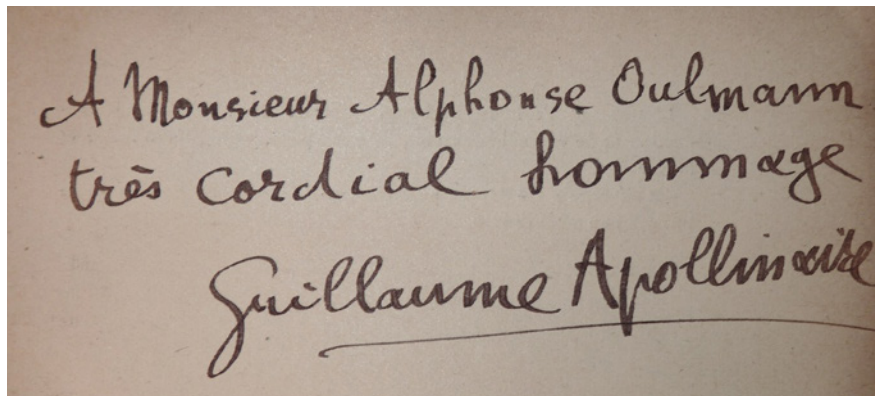 A Monsieur Alphonse Oulmann
très cordial hommage
Guillaume Apollinaire